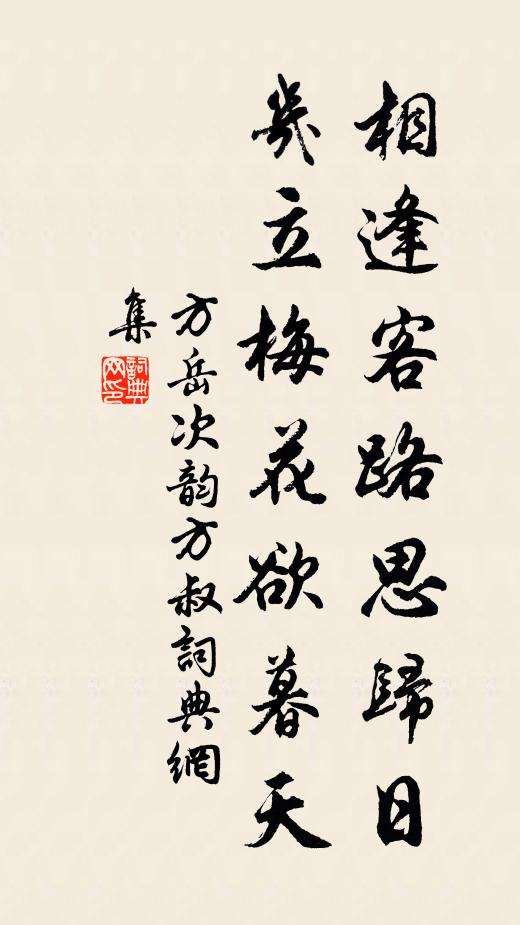 相逢客路思歸日
幾立梅花欲暮天
方岳次韵方叔詞典網
集
詞典網印